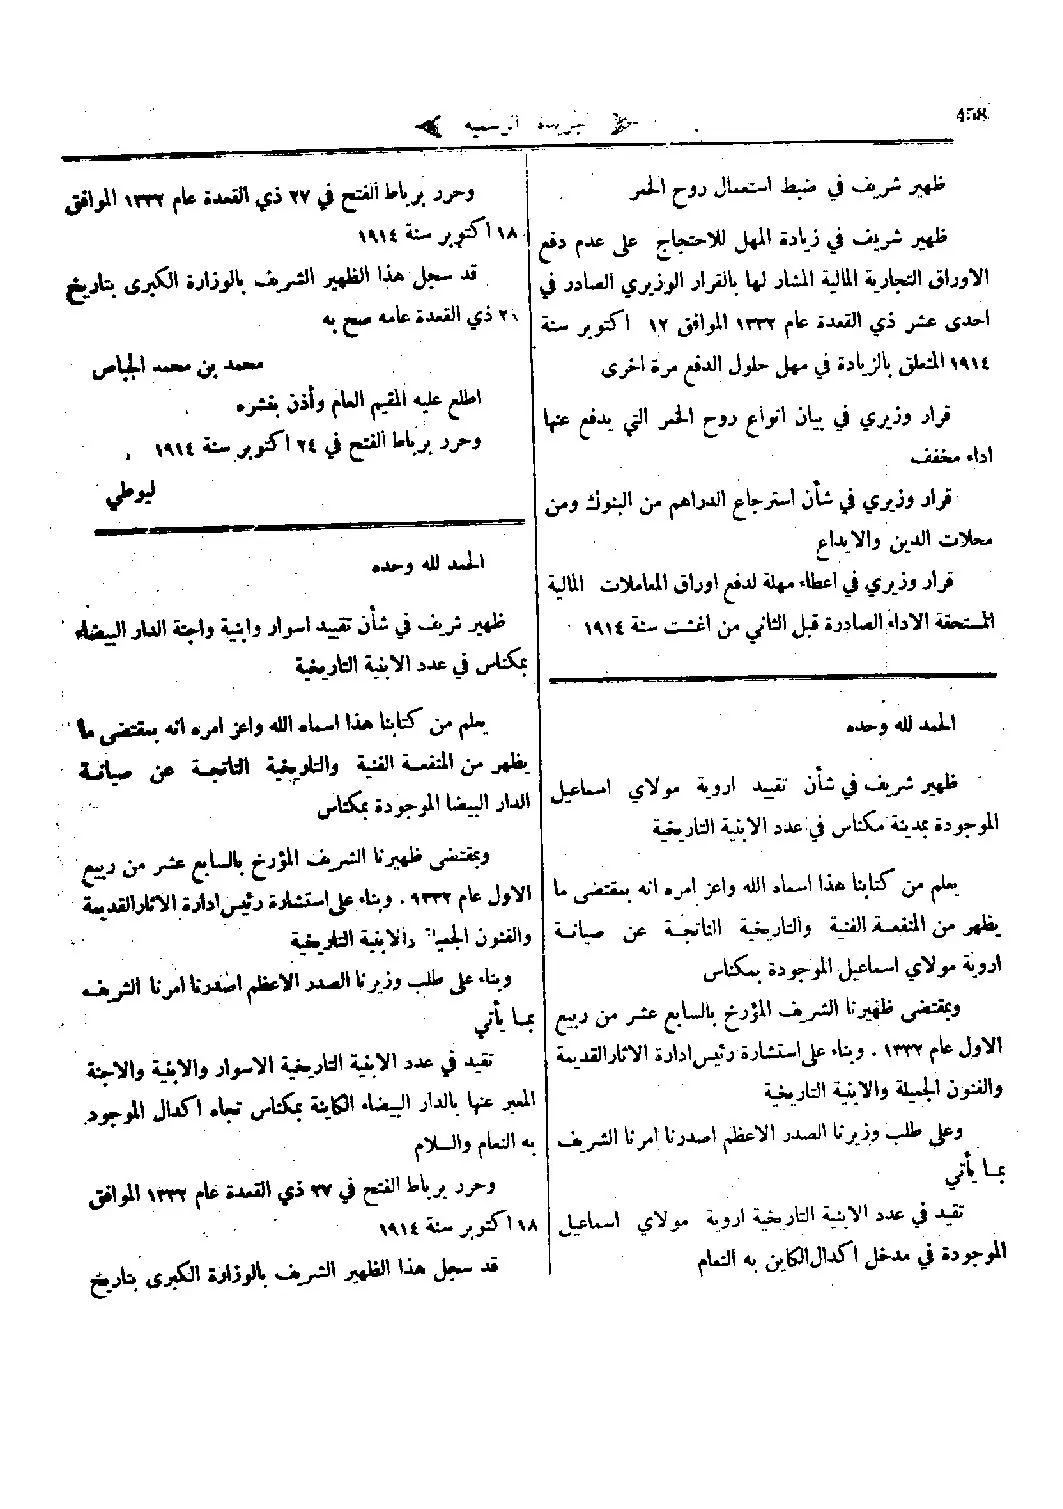 458
جريدة الرسمية
ظهير شريف في ضبط استعمال روح الخمر
ظهير شريف في زيادة المهل للاحتجاج على عدم دفع
الاوراق التجارية المالية المشار لها بالقرار الوزيري الصادر في
احدى عشر ذي القعدة عام ١٣٣٢ الموافق ١٢ اكتوبر سنة
١٩١٤ المتعلق بالزيادة في مهل حلول الدفع مرة اخرى
قرار وزيري في بيان انواع روح الخمر التي يدفع عنها
اداء مخفف
قرار وزيري في شأن استرجاع الدراهم من البنوك ومن
محلات الدين والايداع
قرار وزيري في اعطاء مهلة لدفع اوراق المعاملات المالية
المستحقة الاداء الصادرة قبل الثاني من اغشت سنة ١٩١٤
الحمد لله وحده
ظهير شريف في شأن تقييد اروية مولاي اسماعيل
الموجودة بمدينة مكناس في عدد الابنية التاريخية
يعلم من كتابنا هذا اسماه الله واعز امره انه بمقتضى ما
يظهر من المنفعة الفنية والتاريخية الناتجة عن صيانة
اروية مولاي اسماعيل الموجودة بمكناس
وبمقتضى ظهيرنا الشريف المؤرخ بالسابع عشر من ربيع
الاول عام ١٣٣٢ . وبناء على استشارة رئيس ادارة الاثار القديمة
والفنون الجميلة والابنية التاريخية
وعلى طلب وزيرنا الصدر الاعظم اصدرنا امرنا الشريف
بما يأتي
تقيد في عدد الابنية التاريخية اروية مولاي اسماعيل
الموجودة في مدخل اكدال الكاين به النعام
وحرر برباط الفتح في ٢٧ ذي القعدة عام ١٣٣٢ الموافق
١٨ اكتوبر سنة ١٩١٤
قد سجل هذا الظهير الشريف بالوزارة الكبرى بتاريخ
ذي القعدة عامه صح به
محمد بن محمد الجباص
اطلع عليه المقيم العام وأذن بنشره
وحرر برباط الفتح في ٢٤ اكتوبر سنة ١٩١٤
ليوطي
الحمد لله وحده
ظهير شريف في شأن تقييد اسوار وابنية واجنة الدار البيضاء
بمكناس في عدد الابنية التاريخية
يعلم من كتابنا هذا اسماه الله واعز امره انه بمقتضى ما
يظهر من المنفعة الفنية والتاريخية الناتجة عن صيانة
الدار البيضا الموجودة بمكناس
وبمقتضى ظهيرنا الشريف المؤرخ بالسابع عشر من ربيع
الاول عام ١٣٣٢ . وبناء على استشارة رئيس ادارة الاثار القديمة
والفنون الجميلة والابنية التاريخية
وبناء على طلب وزيرنا الصدر الاعظم اصدرنا امرنا الشريف
بما يأتي
تقيد في عدد الابنية التاريخية الاسوار والابنية والاجنة
المعبر عنها بالدار البيضاء الكاينة بمكناس تجاه اكدال الموجود
به النعام والسلام
وحرر برباط الفتح في ٢٧ ذي القعدة عام ١٣٣٢ الموافق
١٨ اكتوبر سنة ١٩١٤
قد سجل هذا الظهير الشريف بالوزارة الكبرى بتاريخ